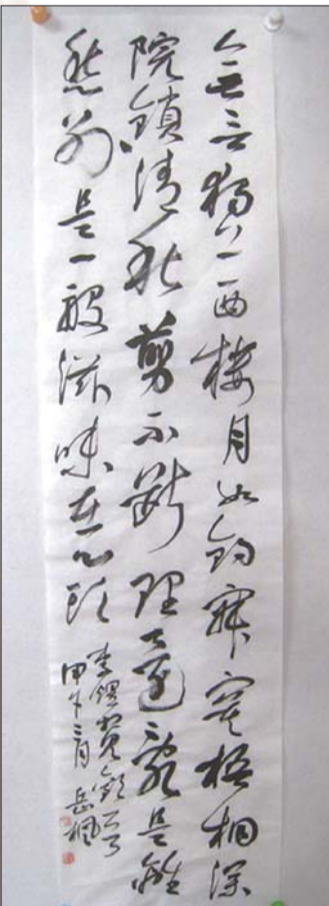 無言獨上西樓月如鉤寂寞梧桐深
院鎖清秋剪不斷理還亂是離
愁別是一般滋味在心頭
李煜
甲午三月 岳楓